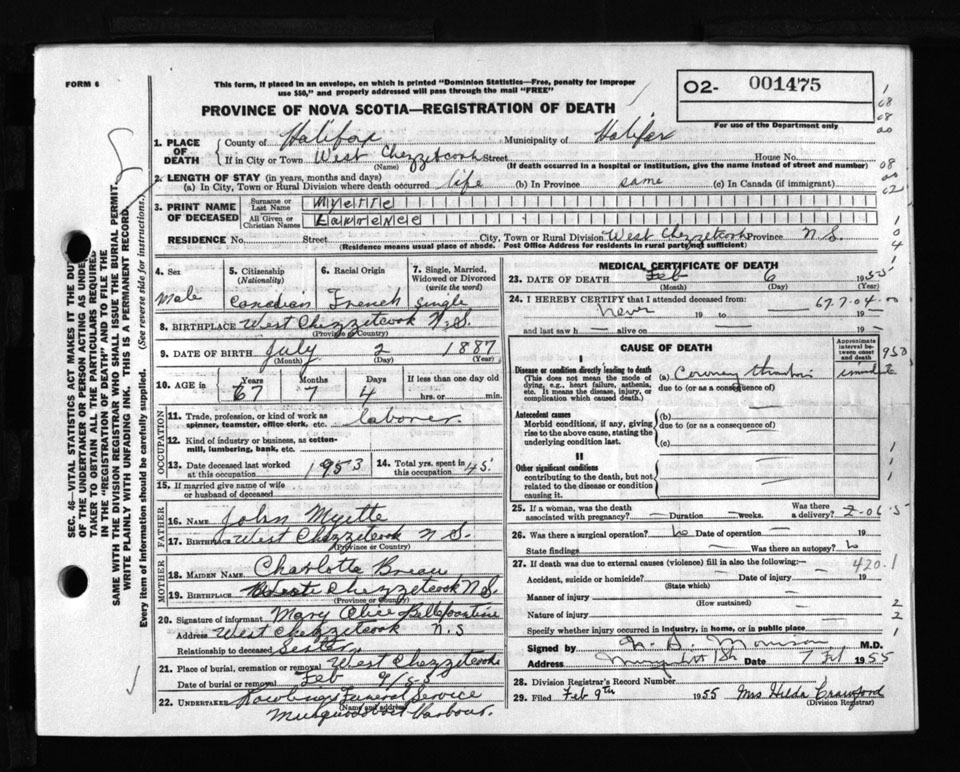 FORM 6
This form, if placed in an envelope, on which is printed "Dominion Statistics—Free, penalty for improper
use $50," and properly addressed will pass through the mail "FREE"
O2- 001475
For use of the Department only
PROVINCE OF NOVA SCOTIA—REGISTRATION OF DEATH
SEC. 46—VITAL STATISTICS ACT MAKES IT THE DUTY
OF THE UNDERTAKER OR PERSON ACTING AS UNDER-
TAKER TO OBTAIN ALL THE PARTICULARS REQUIRED
IN THE "REGISTRATION OF DEATH" AND TO FILE THE
SAME WITH THE DIVISION REGISTRAR WHO SHALL ISSUE THE BURIAL PERMIT.
WRITE PLAINLY WITH UNFADING INK. THIS IS A PERMANENT RECORD.
Every item of information should be carefully supplied. (See reverse side for instructions.)
1. PLACE OF DEATH
County of Halifax Municipality of Halifax
If in City or Town West Chezzetcook Street House No.
(Name) (If death occurred in a hospital or institution, give the name instead of street and number)
2. LENGTH OF STAY (in years, months and days)
(a) In City, Town or Rural Division where death occurred life (b) In Province same (c) In Canada (if immigrant)
3. PRINT NAME OF DECEASED
Surname or Last Name Myette
All Given or Christian Names Lawrence
RESIDENCE No. Street City, Town or Rural Division West Chezzetcook Province N.S.
(Residence means usual place of abode. Post Office Address for residents in rural parts not sufficient)
4. Sex Male
5. Citizenship (Nationality) Canadian
6. Racial Origin French
7. Single, Married, Widowed or Divorced (write the word) Single
8. BIRTHPLACE West Chezzetcook N.S.
(Province or Country)
9. DATE OF BIRTH July 2 1887
(Month) (Day) (Year)
10. AGE in Years 67 Months 7 Days 4 If less than one day old hrs. or min.
OCCUPATION
11. Trade, profession, or kind of work as spinner, teamster, office clerk, etc. laborer
12. Kind of industry or business, as cotton-mill, lumbering, bank, etc.
13. Date deceased last worked at this occupation 1953
14. Total yrs. spent in this occupation 45
15. If married give name of wife or husband of deceased
FATHER
16. NAME John Myette
17. BIRTHPLACE West Chezzetcook N S.
(Province or Country)
MOTHER
18. MAIDEN NAME Charlotte Breau
19. BIRTHPLACE Chezzetcook N.S.
(Province or Country)
20. Signature of informant Mary Alice Bellefontaine
Address West Chezzetcook N.S
Relationship to deceased Sister
21. Place of burial, cremation or removal West Chezzetcook
Date of burial or removal Feb 9/55
22. UNDERTAKER Rawlings Funeral Service
(Name and address)
Musquodoboit Harbour.
MEDICAL CERTIFICATE OF DEATH
23. DATE OF DEATH Feb 6 1955
(Month) (Day)
24. I HEREBY CERTIFY that I attended deceased from: 67.7.04
Never 19 to 19
and last saw h alive on 19
CAUSE OF DEATH
Approximate interval between onset and death
I
Disease or condition directly leading to death
(This does not mean the mode of dying, e.g., heart failure, asthenia, etc. It means the disease, injury, or complication which caused death.)
(a) Coronary
due to (or as a consequence of)
Antecedent causes
Morbid conditions, if any, giving rise to the above cause, stating the underlying condition last.
(b)
due to (or as a consequence of)
(c)
II
Other significant conditions
contributing to the death, but not related to the disease or condition causing it.
25. If a woman, was the death associated with pregnancy? Duration weeks. Was there a delivery?
2-06.5
26. Was there a surgical operation? No Date of operation 19
State findings Was there an autopsy? No
27. If death was due to external causes (violence) fill in also the following:—
420.1
Accident, suicide or homicide? Date of injury 19
(State which)
Manner of injury
(How sustained)
Nature of injury
Specify whether injury occurred in industry, in home, or in public place
Signed by Morrison M.D.
Address Date 7 Feb 1955
28. Division Registrar's Record Number
29. Filed Feb 9th 1955 Mrs Hilda Crawford
(Division Registrar)